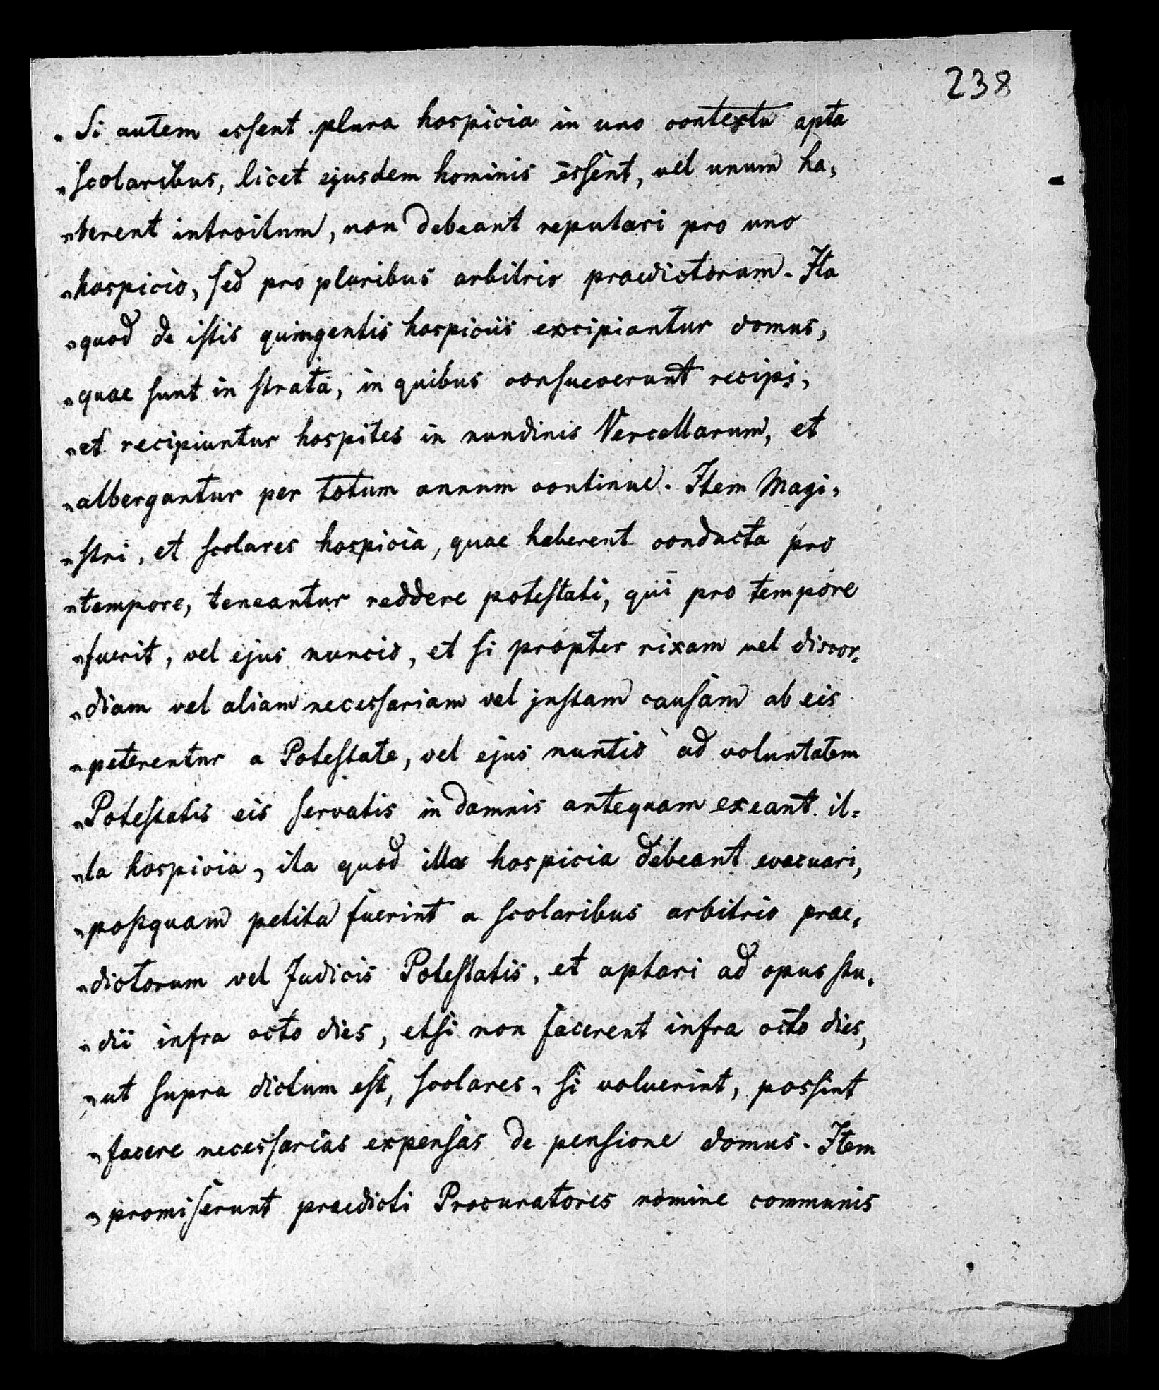 238
„ Si autem essent plura hospicia in uno contextu apta
„ scolaribus, licet ejusdem hominis essent, vel unum ha„
„ berent introitum, non debeant reputari pro uno
„ hospicio, sed pro pluribus arbitrio praedictorum. Ita
„ quod de istis quingentis hospiciis excipiantur domus,
„ quae sunt in strata, in quibus consueverunt recipi,
„ et recipiuntur hospites in nundinis Vercellarum, et
„ albergantur per totum annum continue. Item Magi„
„ stri, et scolares hospicia, quae haberent conducta pro
„ tempore, teneantur reddere potestati, qui pro tempore
„ fuerit, vel ejus nuncio, et si propter rixam vel discor„
„ diam vel aliam necessariam vel justam causam ab eis
„ peterentur a Potestate, vel ejus nuntio ad voluntatem
„ Potestatis eis servatis in damnis antequam exeant il=
„ la hospicia, ita quod illa hospicia debeant evacuari,
„ postquam petita fuerint a scolaribus arbitrio prae„
„ dictorum vel Judicis Potestatis, et aptari ad opus stu„
„ dii infra octo dies, etsi non facerent infra octo dies,
„ ut supra dictum est, scolares, si voluerint, possint
„ facere necessarias expensas de pensione domus. Item
„ promiserunt praedicti Procuratores nomine communis